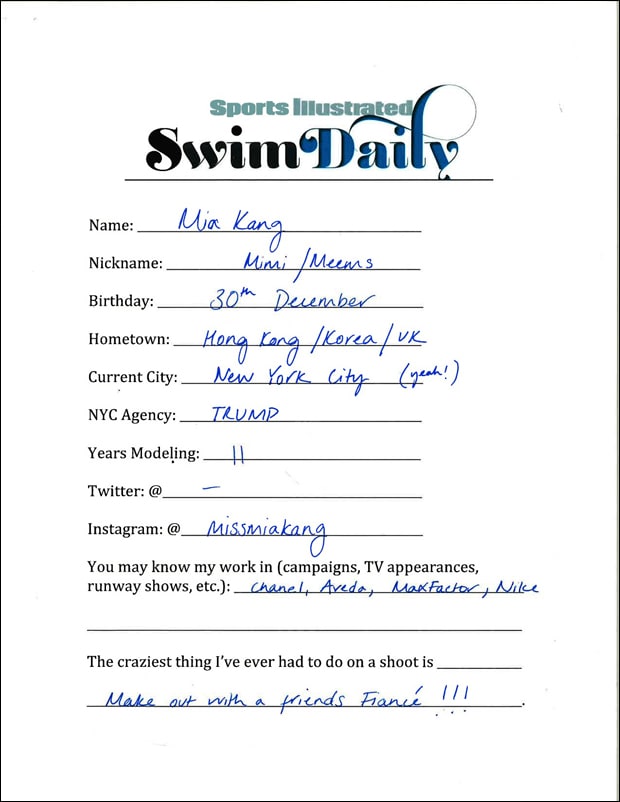 Sports Illustrated
Swim Daily
Name: Mia Kang
Nickname: Mimi / Meems
Birthday: 30th December
Hometown: Hong Kong / Korea / UK
Current City: New York City (yeah!)
NYC Agency: TRUMP
Years Modeling: 11
Twitter: @ –
Instagram: @ missmiakang
You may know my work in (campaigns, TV appearances,
runway shows, etc.): Chanel, Aveda, MaxFactor, Nike
The craziest thing I've ever had to do on a shoot is
Make out with a friends Fiancé !!! .